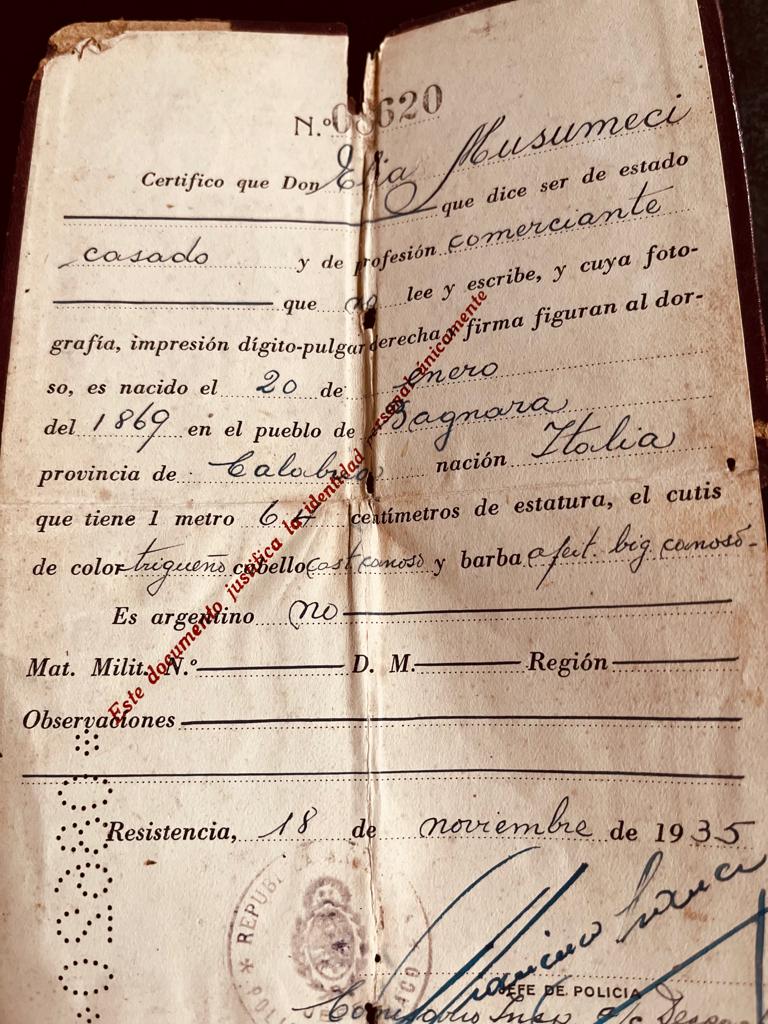 N.º 08620
Certifico que Don Elia Musumeci
que dice ser de estado
casado y de profesión comerciante
que no lee y escribe, y cuya foto-
grafía, impresión dígito-pulgar derecha y firma figuran al dor-
so, es nacido el 20 de enero
del 1869 en el pueblo de Bagnara
provincia de Calabria nación Italia
que tiene 1 metro 64 centímetros de estatura, el cutis
de color trigueño cabello cast canoso y barba afeit. big. canoso-
Es argentino no
Mat. Milit. N.º D. M. Región
Observaciones
Resistencia, 18 de noviembre de 1935
Este documento justifica la identidad personal únicamente
REPUBLICA
JEFE DE POLICIA
Comisario Insp.